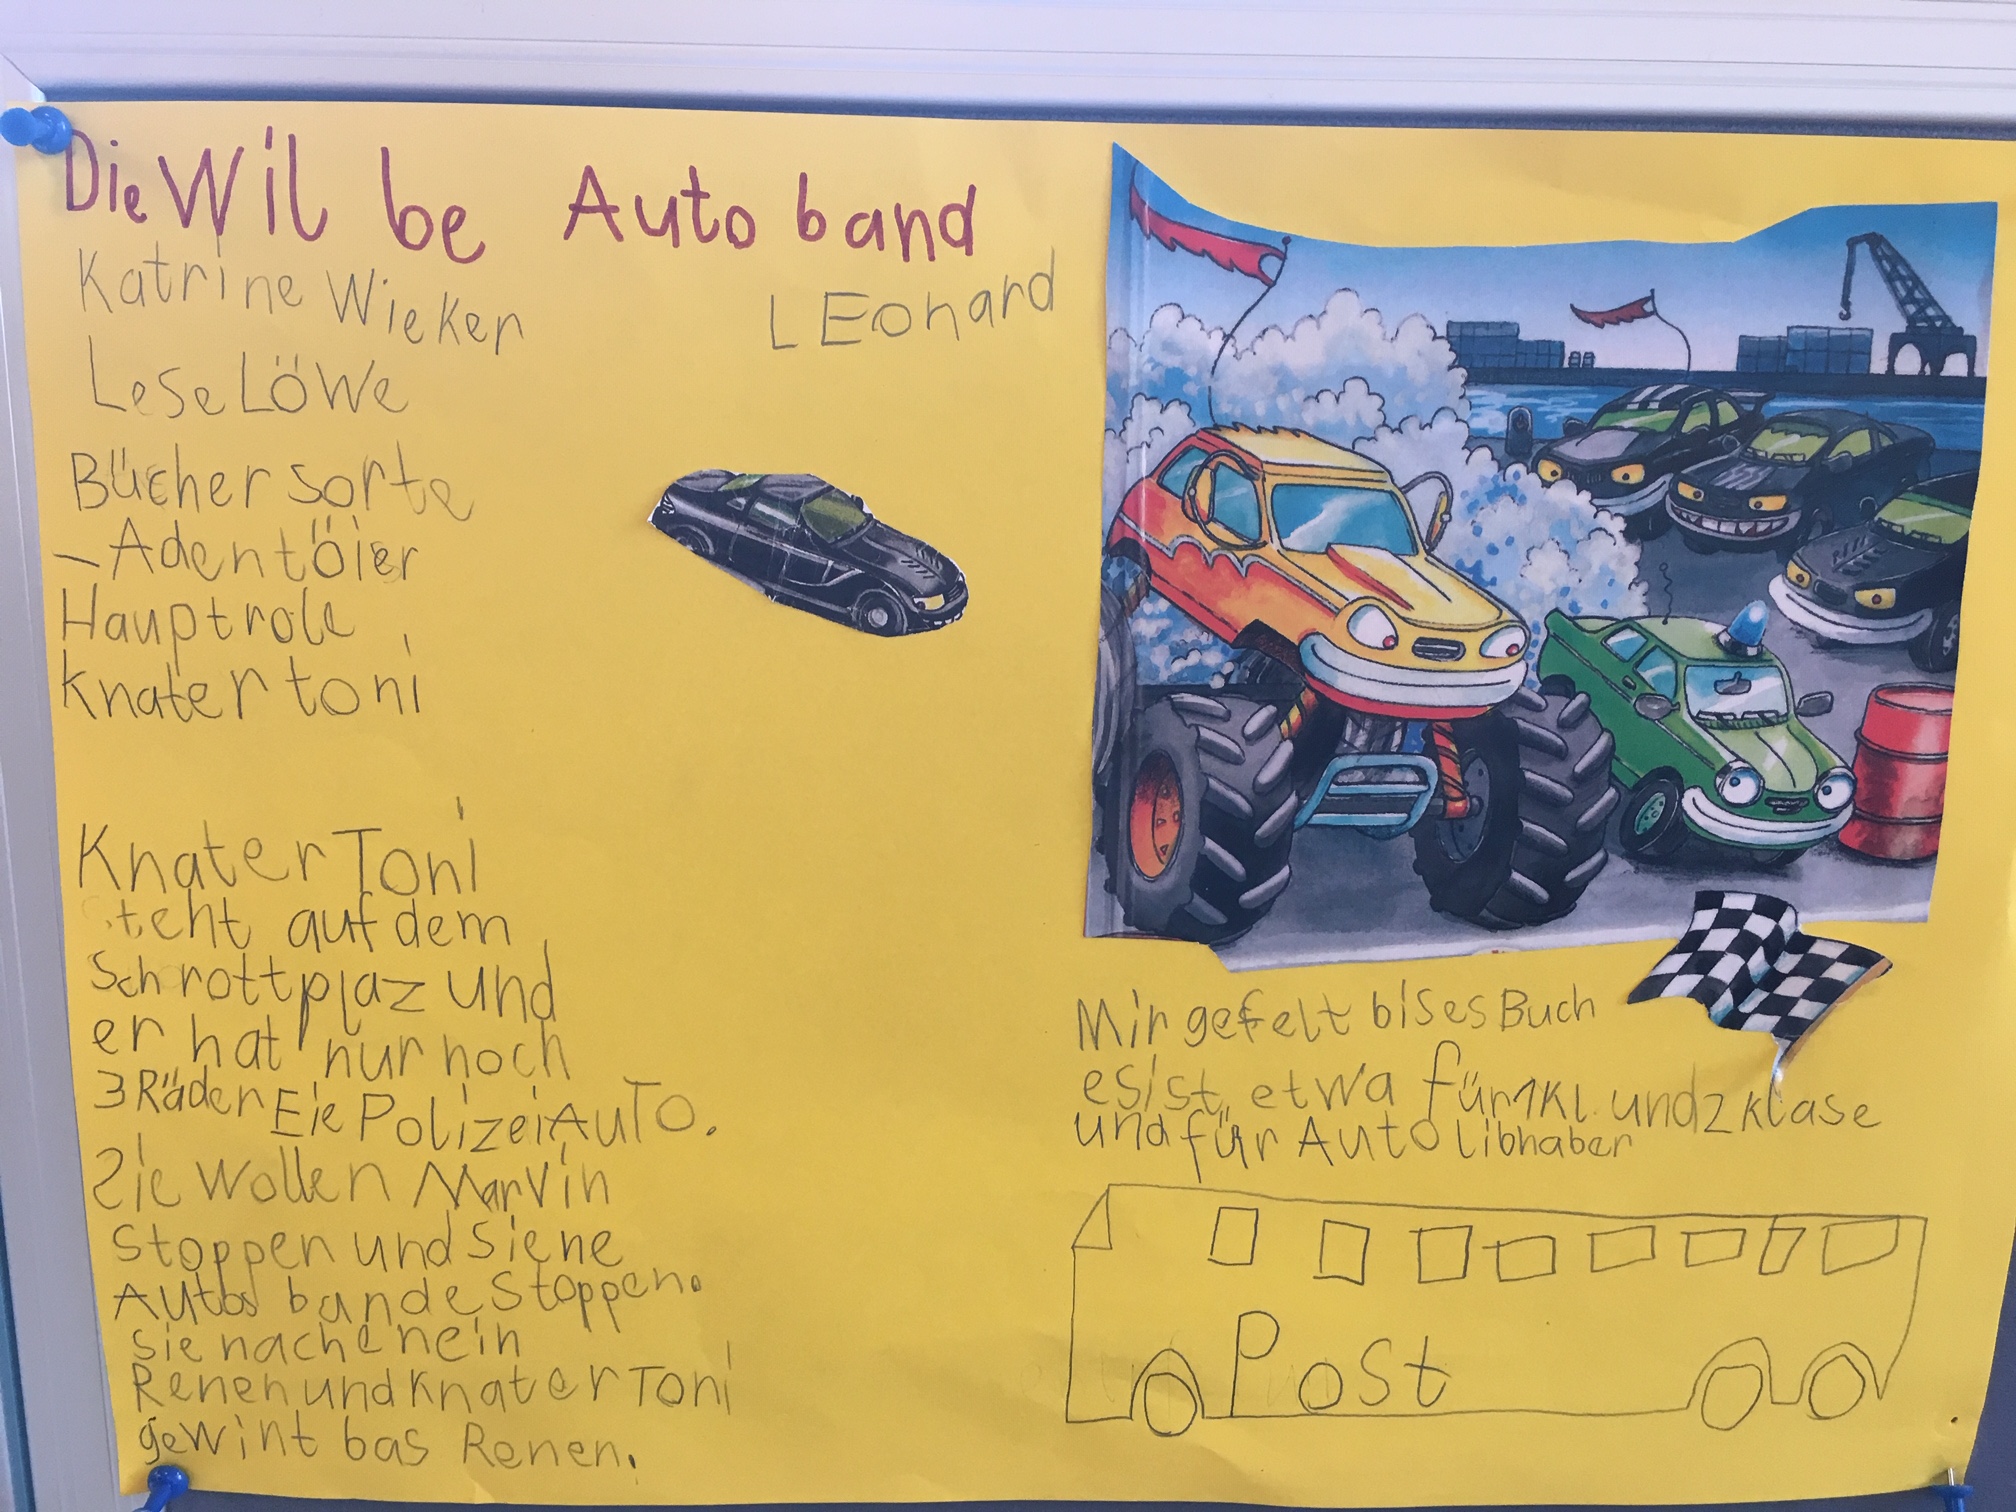 Die Wil be Auto band
Katrine Wieker
LEonard
LeseLöwe
Bücher sorte
- Adentöier
Hauptrole
Knater toni
Knater Toni
steht auf dem
Schrottplaz und
er hat nur noch
3 Räder Eie PolizeiAuTo.
Sie wollen Marvin
stoppen und siene
Autos bande stoppen.
sie nachen ein
Renen und Knater Toni
gewint bas Renen.
Mir gefelt bises Buch
es ist etwa für 1Kl. und 2 klase
und für Auto libhaber
Post